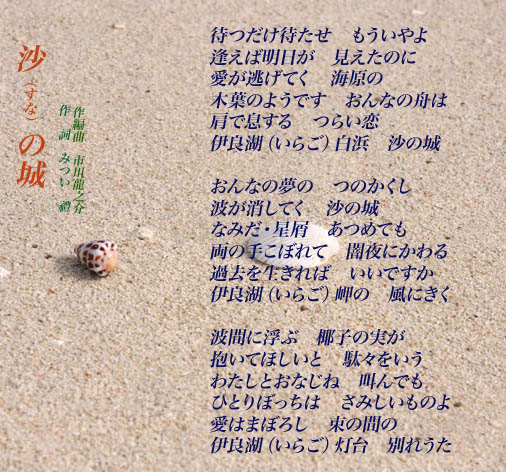 沙
(すな)
の城
作編曲 市川龍之介
作詞 みつい 禮
待つだけ待たせ もういやよ
逢えば明日が 見えたのに
愛が逃げてく 海原の
木葉のようです おんなの舟は
肩で息する つらい恋
伊良湖(いらご)白浜 沙の城
おんなの夢の つのかくし
波が消してく 沙の城
なみだ・星屑 あつめても
両の手こぼれて 闇夜にかわる
過去を生きれば いいですか
伊良湖(いらご)岬の 風にきく
波間に浮ぶ 椰子の実が
抱いてほしいと 駄々をいう
わたしとおなじね 叫んでも
ひとりぼっちは さみしいものよ
愛はまぼろし 束の間の
伊良湖(いらご)灯台 別れうた